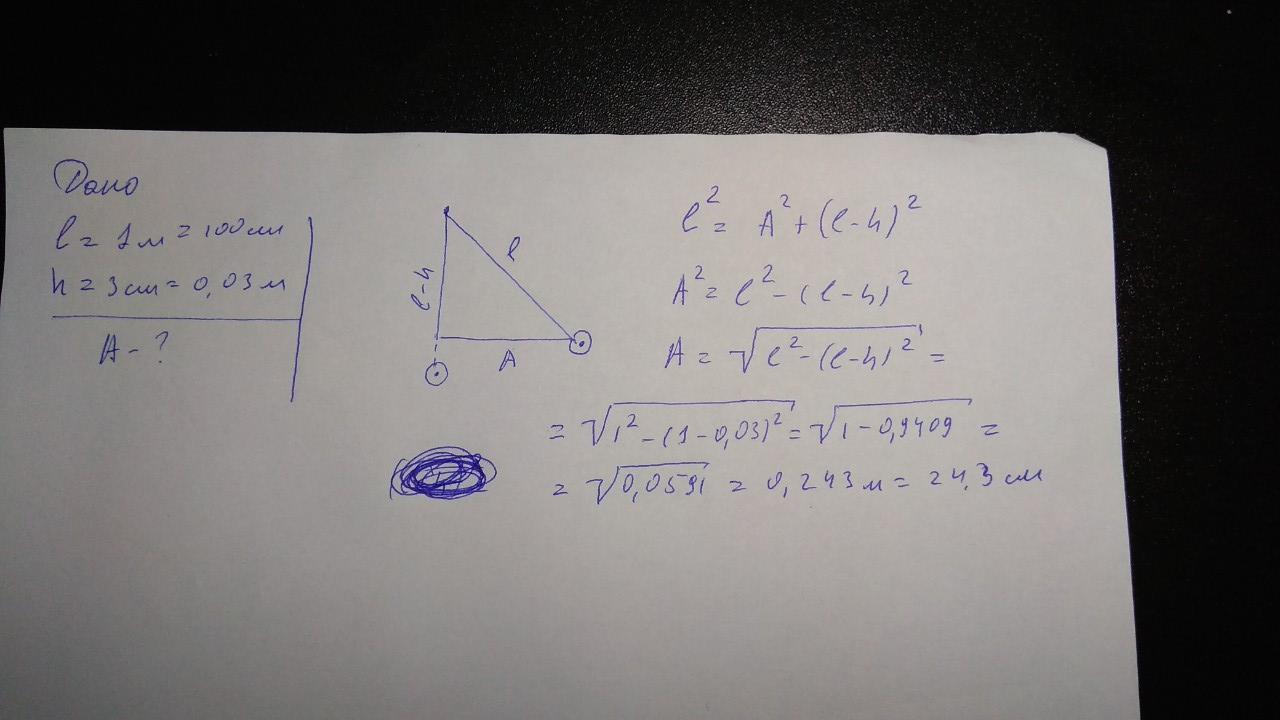 Дано
l = 1 м = 100 см
h = 3 см = 0,03 м
A - ?
l-h
l
A
l² = A² + (l-h)²
A² = l² - (l-h)²
A = √l² - (l-h)² =
= √1² - (1-0,03)² = √1-0,9409 =
= √0,0591 = 0,243 м = 24,3 см